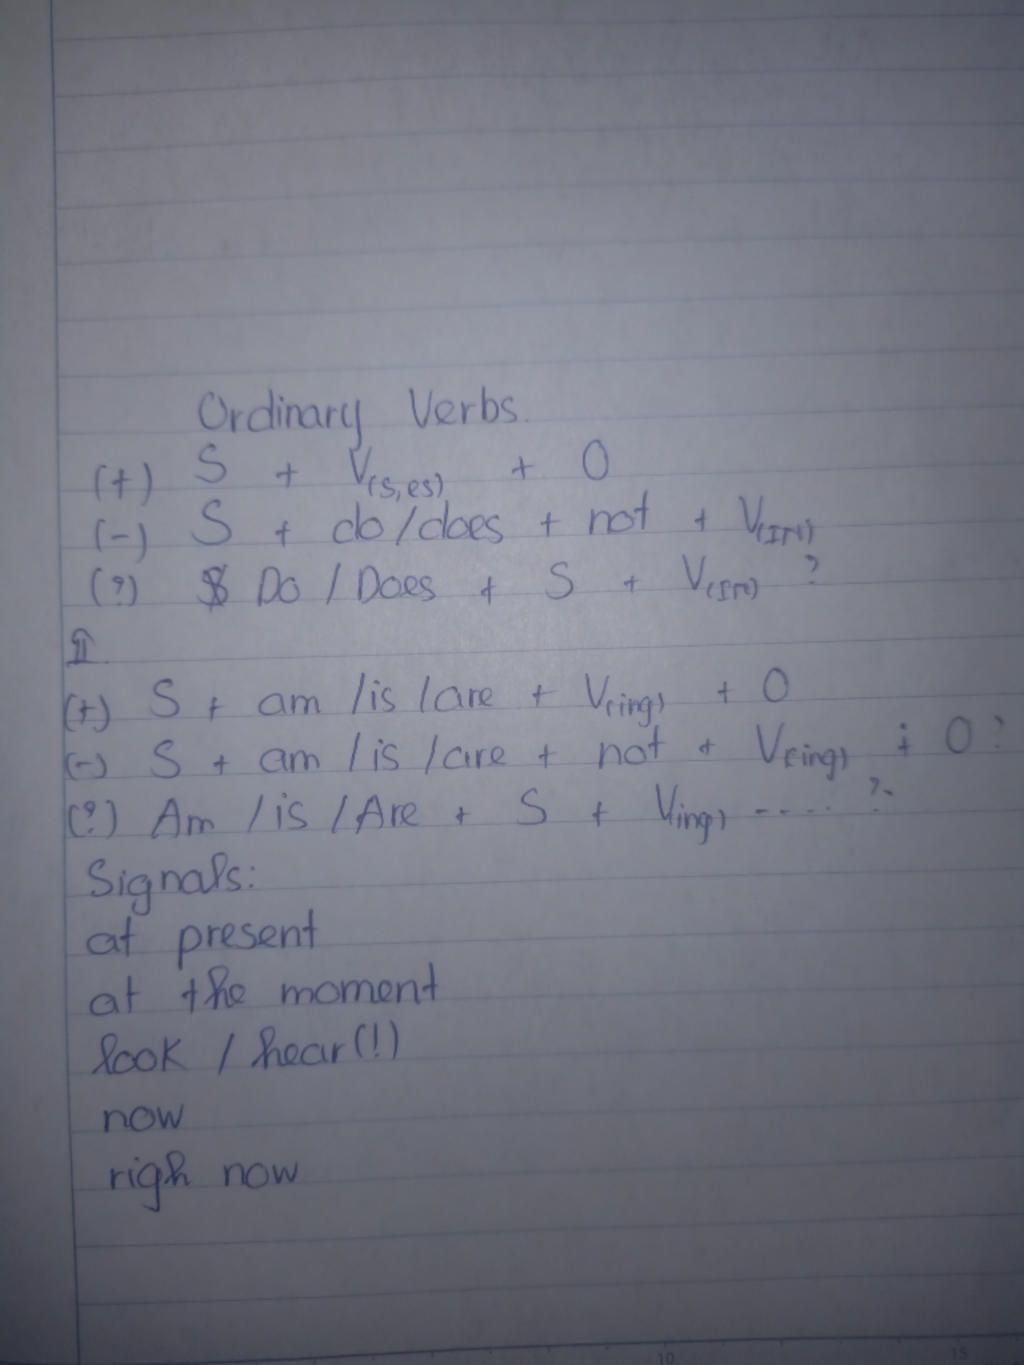 Ordinary Verbs.
(+) S + V(s,es) + O
(-) S + do/does + not + V(IN)
(?) Do / Does + S + V(IN) ?
II.
(+) S + am /is /are + V(ing) + O
(-) S + am /is /are + not + V(ing) + O?
(?) Am /is /Are + S + Ving) ---- ?
Signals:
at present
at the moment
look / hear(!)
now
righ now
10 15